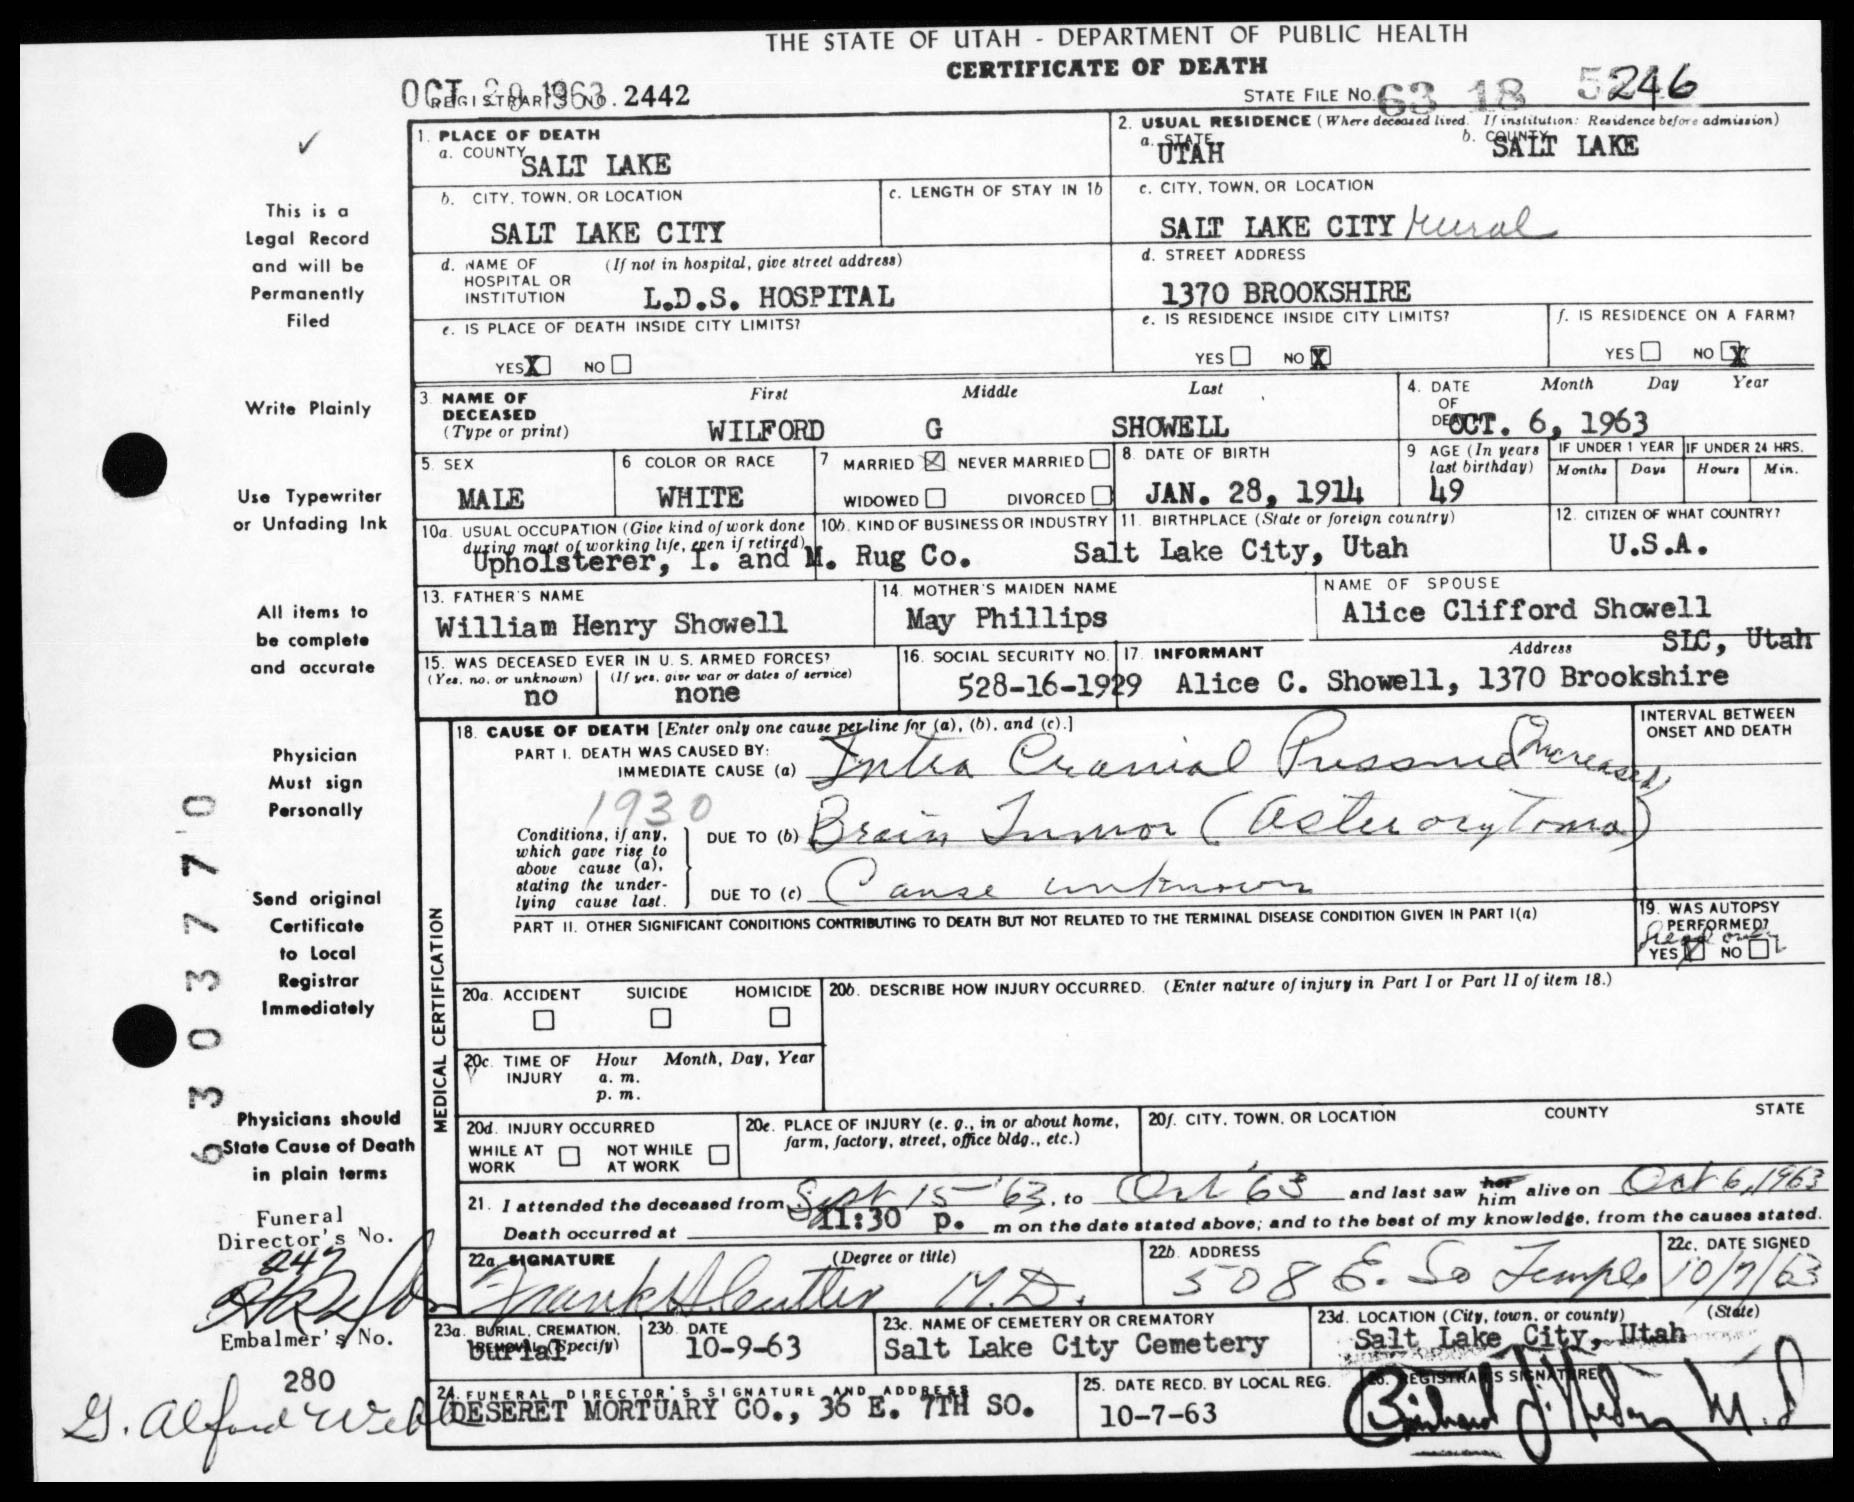 THE STATE OF UTAH - DEPARTMENT OF PUBLIC HEALTH
CERTIFICATE OF DEATH
OCT 29 1963
REGISTRAR'S NO. 2442
STATE FILE NO. 63 18 5246
1. PLACE OF DEATH
a. COUNTY
SALT LAKE
2. USUAL RESIDENCE (Where deceased lived. If institution: Residence before admission)
a. STATE
UTAH
b. COUNTY
SALT LAKE
b. CITY, TOWN, OR LOCATION
SALT LAKE CITY
c. LENGTH OF STAY IN 1b
c. CITY, TOWN, OR LOCATION
SALT LAKE CITY rural
d. NAME OF HOSPITAL OR INSTITUTION (If not in hospital, give street address)
L.D.S. HOSPITAL
d. STREET ADDRESS
1370 BROOKSHIRE
e. IS PLACE OF DEATH INSIDE CITY LIMITS?
YES X NO
e. IS RESIDENCE INSIDE CITY LIMITS?
YES NO X
f. IS RESIDENCE ON A FARM?
YES NO X
3. NAME OF DECEASED (Type or print)
First Middle Last
WILFORD G SHOWELL
4. DATE OF DEATH Month Day Year
OCT. 6, 1963
5. SEX
MALE
6 COLOR OR RACE
WHITE
7 MARRIED X NEVER MARRIED
WIDOWED DIVORCED
8. DATE OF BIRTH
JAN. 28, 1914
9 AGE (In years last birthday)
49
IF UNDER 1 YEAR
Months Days
IF UNDER 24 HRS.
Hours Min.
10a. USUAL OCCUPATION (Give kind of work done during most of working life, even if retired)
10b. KIND OF BUSINESS OR INDUSTRY
Upholsterer, I. and M. Rug Co.
11. BIRTHPLACE (State or foreign country)
Salt Lake City, Utah
12. CITIZEN OF WHAT COUNTRY?
U.S.A.
13. FATHER'S NAME
William Henry Showell
14. MOTHER'S MAIDEN NAME
May Phillips
NAME OF SPOUSE
Alice Clifford Showell
15. WAS DECEASED EVER IN U.S. ARMED FORCES?
(Yes, no, or unknown) (If yes, give war or dates of service)
no none
16. SOCIAL SECURITY NO.
528-16-1929
17. INFORMANT Address
SLC, Utah
Alice C. Showell, 1370 Brookshire
MEDICAL CERTIFICATION
18. CAUSE OF DEATH [Enter only one cause per line for (a), (b), and (c).]
INTERVAL BETWEEN ONSET AND DEATH
PART I. DEATH WAS CAUSED BY:
IMMEDIATE CAUSE (a) Intra Cranial Pressure (Increased)
1930
Conditions, if any, which gave rise to above cause (a), stating the underlying cause last.
DUE TO (b) Brain Tumor (Asterocytoma)
DUE TO (c) Cause unknown
PART II. OTHER SIGNIFICANT CONDITIONS CONTRIBUTING TO DEATH BUT NOT RELATED TO THE TERMINAL DISEASE CONDITION GIVEN IN PART I(a)
19. WAS AUTOPSY PERFORMED?
head only
YES X NO
20a. ACCIDENT SUICIDE HOMICIDE
20b. DESCRIBE HOW INJURY OCCURRED. (Enter nature of injury in Part I or Part II of item 18.)
20c. TIME OF INJURY Hour Month, Day, Year
a. m.
p. m.
20d. INJURY OCCURRED
WHILE AT WORK NOT WHILE AT WORK
20e. PLACE OF INJURY (e. g., in or about home, farm, factory, street, office bldg., etc.)
20f. CITY, TOWN, OR LOCATION COUNTY STATE
21. I attended the deceased from Sept 15 '63, to Oct '63 and last saw her him alive on Oct 6, 1963
Death occurred at 11:30 p. m on the date stated above; and to the best of my knowledge, from the causes stated.
22a. SIGNATURE (Degree or title)
Frank H Cutler M.D.
22b. ADDRESS
508 E. So Temple
22c. DATE SIGNED
10/7/63
23a. BURIAL, CREMATION, REMOVAL (Specify)
burial
23b. DATE
10-9-63
23c. NAME OF CEMETERY OR CREMATORY
Salt Lake City Cemetery
23d. LOCATION (City, town, or county) (State)
Salt Lake City, Utah
24. FUNERAL DIRECTOR'S SIGNATURE AND ADDRESS
DESERET MORTUARY CO., 36 E. 7TH SO.
25. DATE RECD. BY LOCAL REG.
10-7-63
26. REGISTRAR'S SIGNATURE
M.D
This is a
Legal Record
and will be
Permanently
Filed
Write Plainly
Use Typewriter
or Unfading Ink
All items to
be complete
and accurate
Physician
Must sign
Personally
Send original
Certificate
to Local
Registrar
Immediately
Physicians should
State Cause of Death
in plain terms
6303770
Funeral
Director's No.
247
Embalmer's No.
280
G. Alford Webb